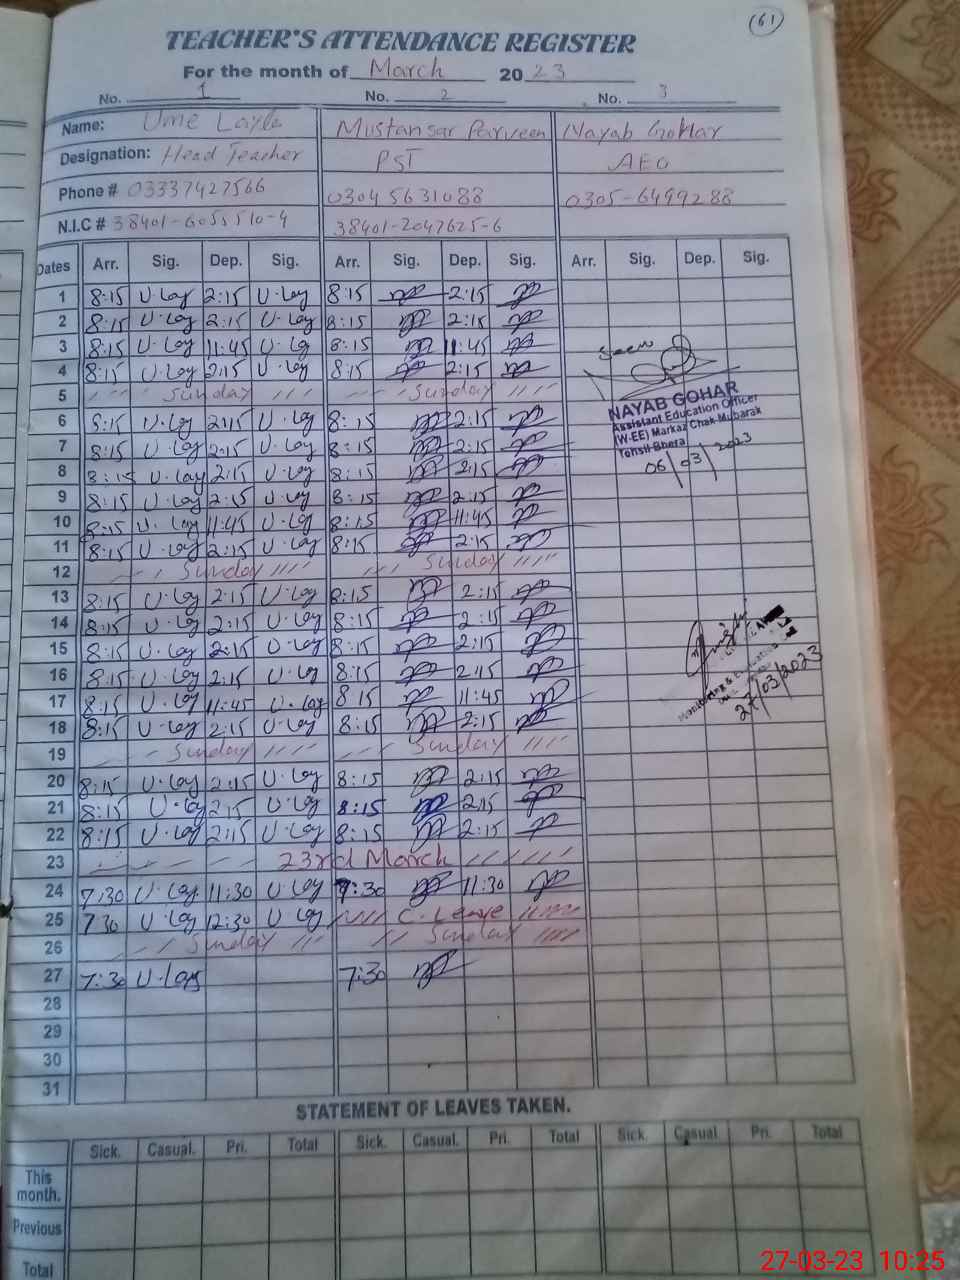 (61)
TEACHER'S ATTENDANCE REGISTER
For the month of March 2023
No. 1 No. 2 No. 3
Name: Ume Layla Mustansar Parveen Nayab Gohar
Designation: Head Teacher PST AEO
Phone # 03337427566 0304 5631088 0305-6499288
N.I.C # 38401-6055510-4 38401-2047625-6
Dates Arr. Sig. Dep. Sig. Arr. Sig. Dep. Sig. Arr. Sig. Dep. Sig.
1 8:15 U.Lay 2:15 U.Lay 8:15 2:15
2 8:15 U.Lay 2:15 U.Lay 8:15 2:15
3 8:15 U.Lay 11:45 U.Lay 8:15 11:45
Seen
4 8:15 U.Lay 2:15 U.Lay 8:15 2:15
5 Sunday Sunday
NAYAB GOHAR
Assistant Education Officer
(W-EE) Markaz Chak Mubarak
Tehsil Bhera
06/03/2023
6 8:15 U.Lay 2:15 U.Lay 8:15 2:15
7 8:15 U.Lay 2:15 U.Lay 8:15 2:15
8 8:15 U.Lay 2:15 U.Lay 8:15 2:15
9 8:15 U.Lay 2:15 U.Lay 8:15 2:15
10 8:15 U.Lay 11:45 U.Lay 8:15 11:45
11 8:15 U.Lay 2:15 U.Lay 8:15 2:15
12 Sunday Sunday
13 8:15 U.Lay 2:15 U.Lay 8:15 2:15
14 8:15 U.Lay 2:15 U.Lay 8:15 2:15
15 8:15 U.Lay 2:15 U.Lay 8:15 2:15
16 8:15 U.Lay 2:15 U.Lay 8:15 2:15
17 8:15 U.Lay 11:45 U.Lay 8:15 11:45
Monitoring &
27/03/2023
18 8:15 U.Lay 2:15 U.Lay 8:15 2:15
19 Sunday Sunday
20 8:15 U.Lay 2:15 U.Lay 8:15 2:15
21 8:15 U.Lay 2:15 U.Lay 8:15 2:15
22 8:15 U.Lay 2:15 U.Lay 8:15 2:15
23 23rd March
24 7:30 U.Lay 11:30 U.Lay 7:30 11:30
25 7:30 U.Lay 12:30 U.Lay C.Leave
26 Sunday Sunday
27 7:30 U.Lay 7:30
28
29
30
31
STATEMENT OF LEAVES TAKEN.
Sick. Casual. Pri. Total Sick. Casual. Pri. Total Sick. Casual Pri. Total
This
month.
Previous
Total
27-03-23 10:25